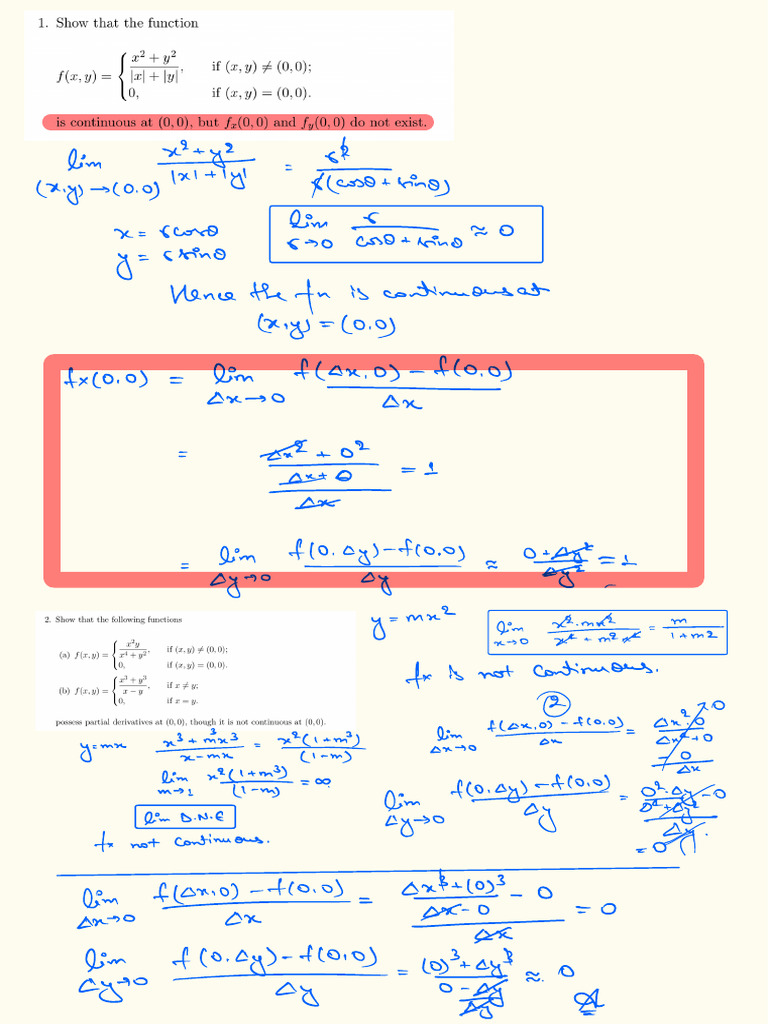 1. Show that the function
f(x, y) = { x² + y² / |x| + |y|, if (x, y) ≠ (0, 0);
0, if (x, y) = (0, 0).
is continuous at (0, 0), but fx(0, 0) and fy(0, 0) do not exist.
lim (x,y)→(0,0) x² + y² / |x| + |y| = r² / r(cosθ + sinθ)
x = r cosθ
y = r sinθ
lim r→0 r / cosθ + sinθ ≈ 0
Hence the fn is continuous at
(x,y) = (0,0)
fx(0,0) = lim Δx→0 f(Δx,0) – f(0,0) / Δx
= Δx² + 0² / Δx + 0 / Δx = 1
= lim Δy→0 f(0,Δy) – f(0,0) / Δy ≈ 0 + Δy² / Δy² = 1
2. Show that the following functions
(a) f(x, y) = { x²y / x⁴ + y², if (x, y) ≠ (0, 0);
0, if (x, y) = (0, 0).
(b) f(x, y) = { x³ + y³ / x − y, if x ≠ y;
0, if x = y.
possess partial derivatives at (0, 0), though it is not continuous at (0, 0).
y = mx²
lim x→0 x²·mx² / x⁴ + m²x⁴ = m / 1+m2
fx is not continuous.
y=mx x³ + m³x³ / x – mx = x²(1+m³) / (1–m)
lim m→1 x²(1+m³) / (1–m) = ∞
lim D.N.E
fx not continuous.
②
lim Δx→0 f(Δx,0) – f(0,0) / Δx = Δx²·0 / Δx⁴+0 – 0 / Δx = 0
lim Δy→0 f(0,Δy) – f(0,0) / Δy = 0²·Δy / 0⁴+Δy² – 0 / Δy = 0
lim Δx→0 f(Δx,0) – f(0,0) / Δx = Δx³ + (0)³ / Δx – 0 – 0 / Δx = 0
lim Δy→0 f(0,Δy) – f(0,0) / Δy = (0)³ + Δy³ / 0 – Δy / Δy ≈ 0